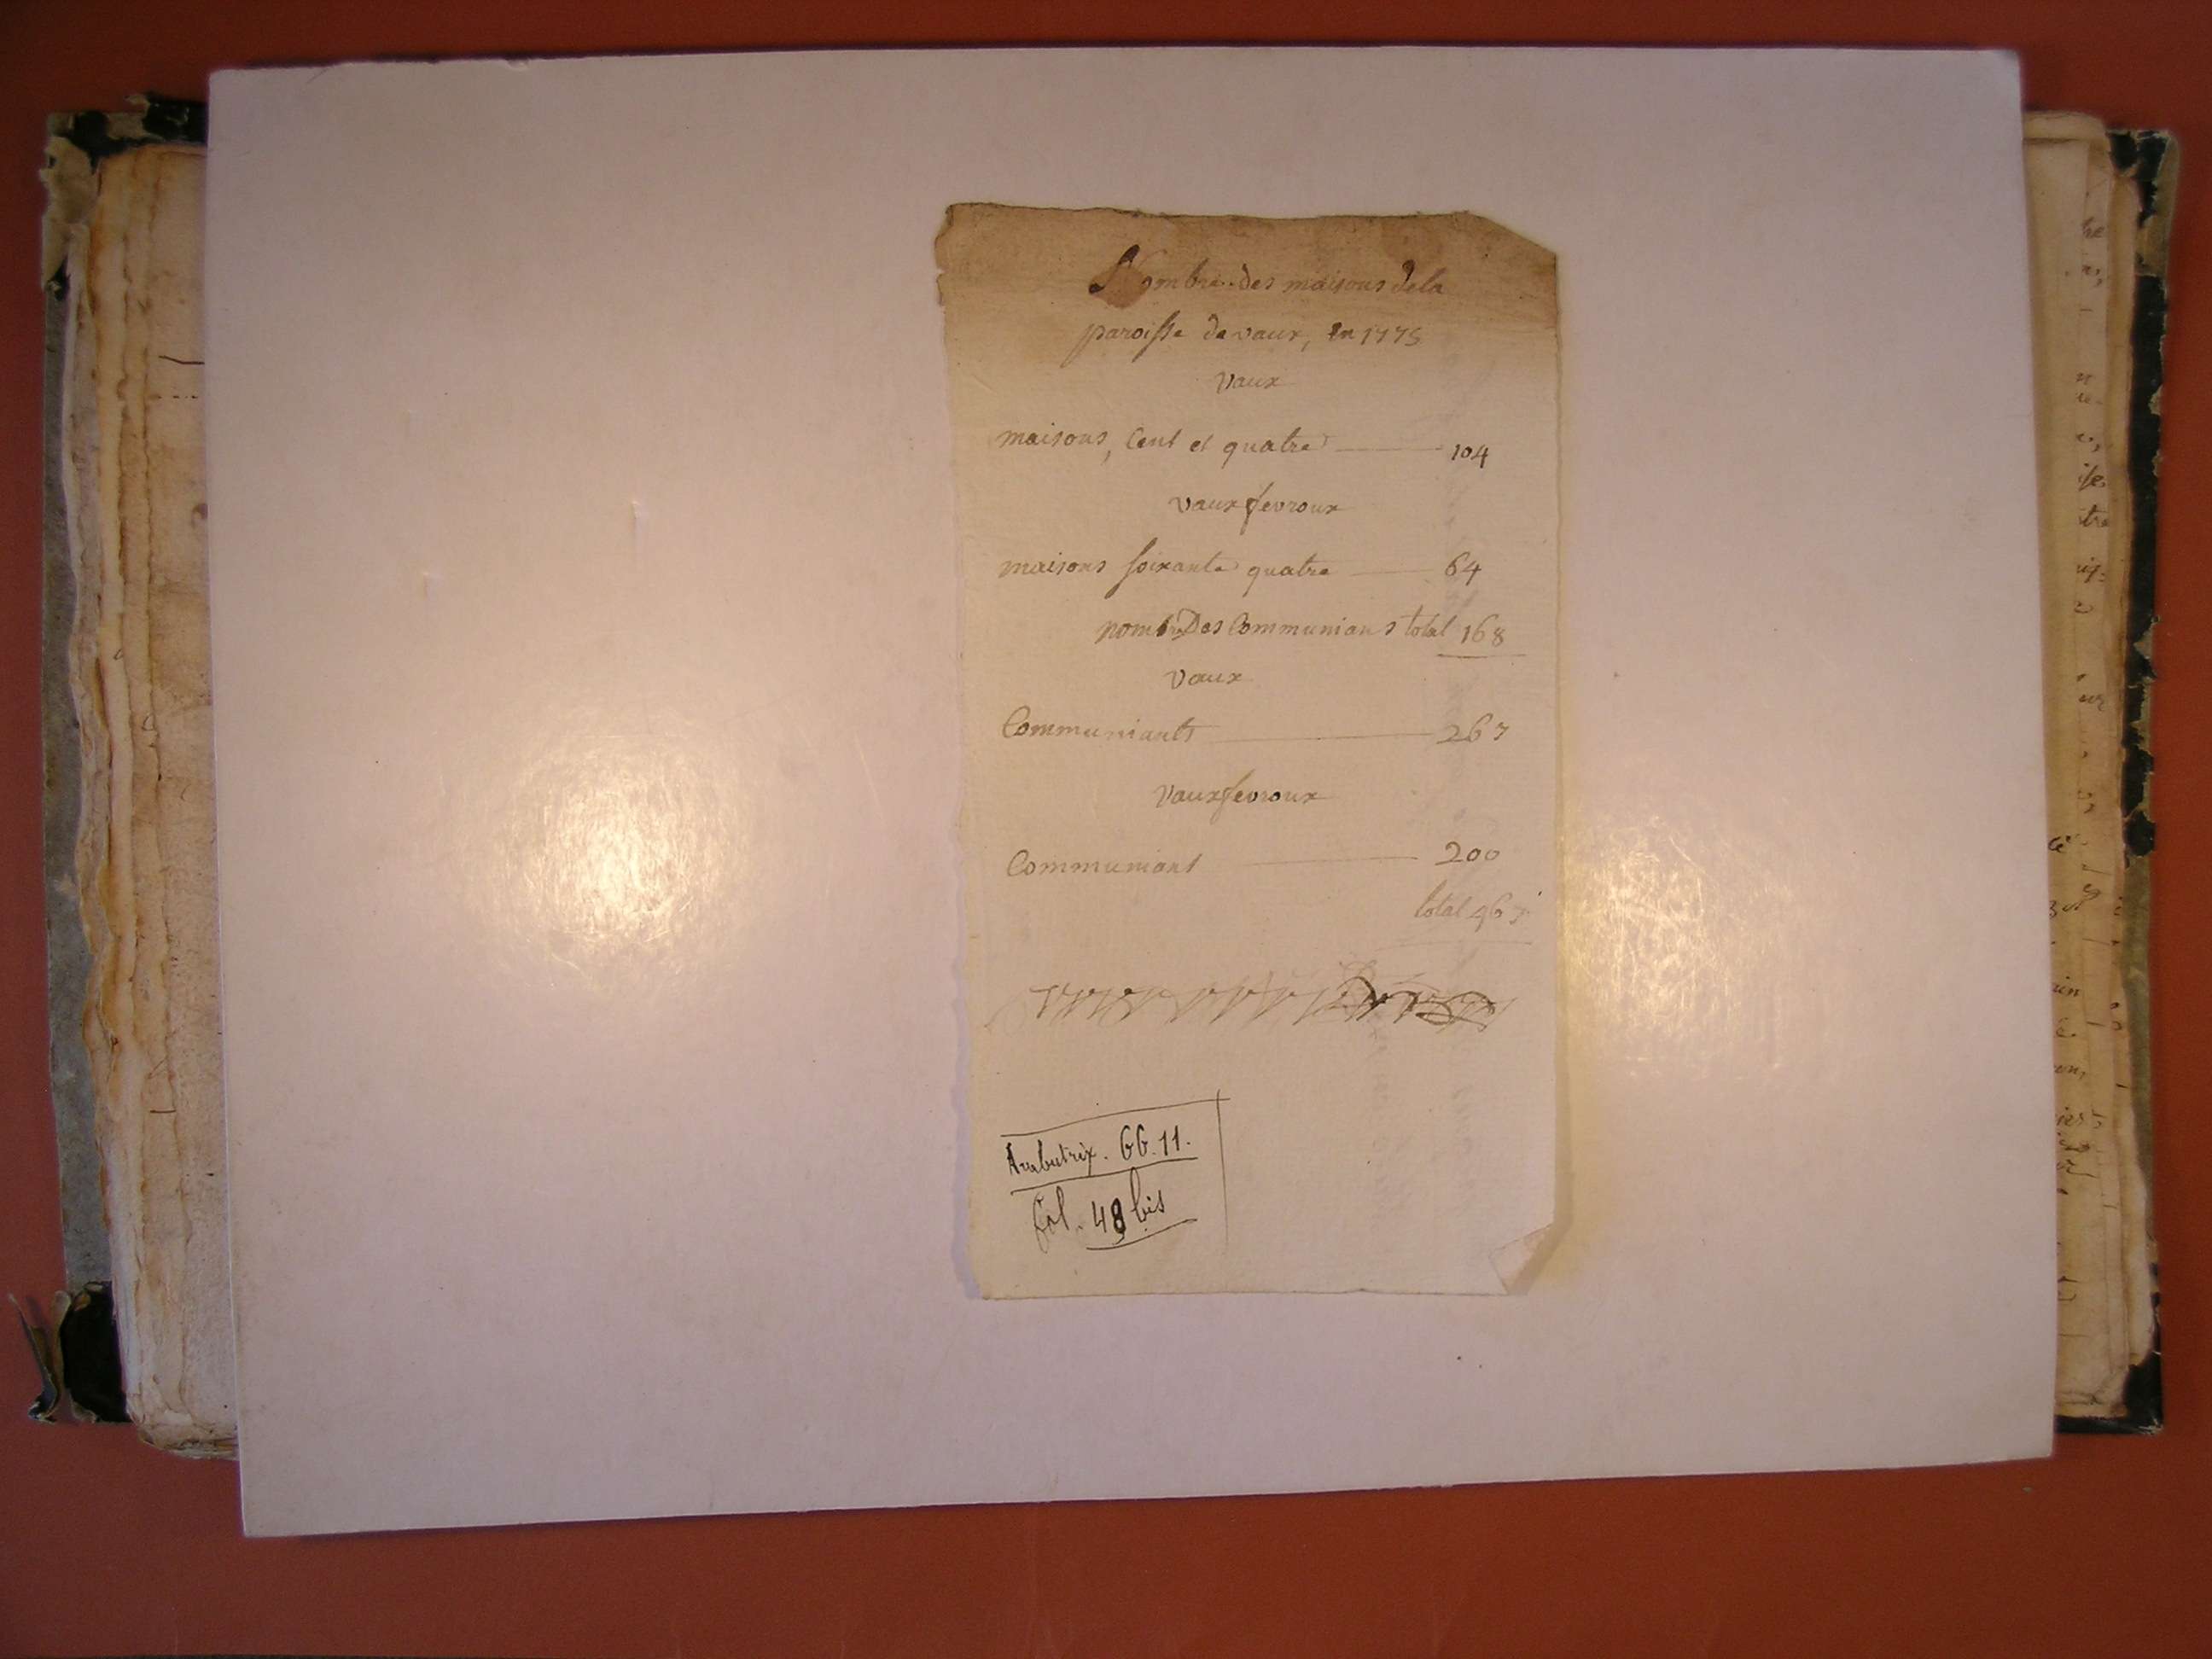 Nombre des maisons de la
paroisse de vaux, en 1775
vaux
maisons, Cent et quatre 104
vauxfevroux
maisons soixante quatre 64
nombre Des Communians total 168
vaux
Communiants 267
vauxfevroux
Communiant 200
total 467
GG. 11.
fol. 48 bis